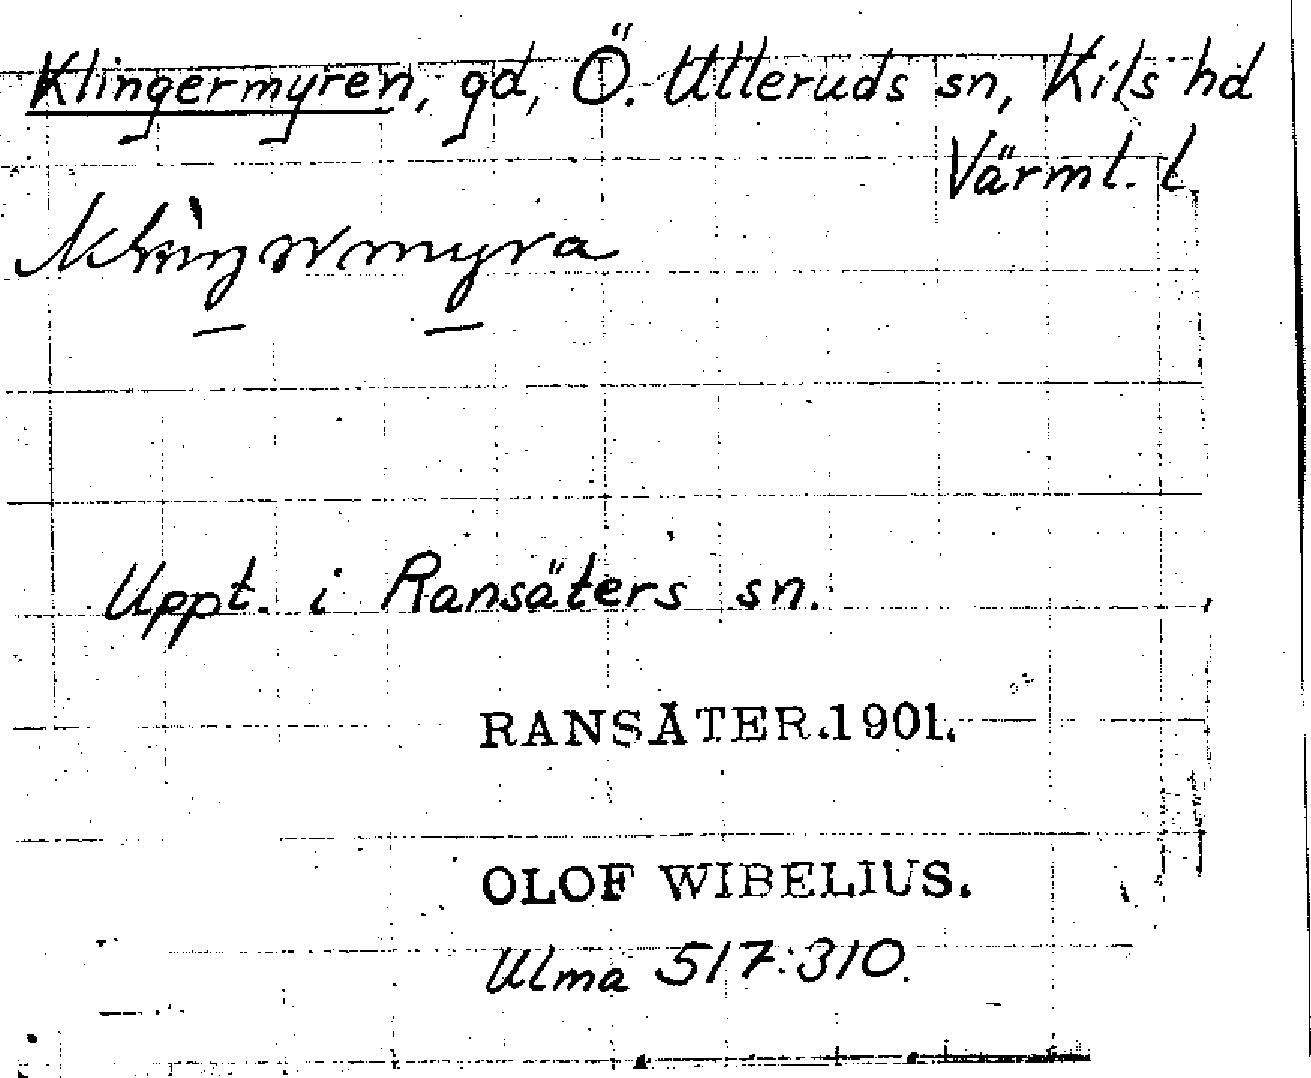 Klingermyren, gd, Ö. Ulleruds sn, Kils hd
Värml. l.
Uppt. i Ransäters sn.
RANSÄTER.1901.
OLOF WIBELIUS.
Ulma 517:310.